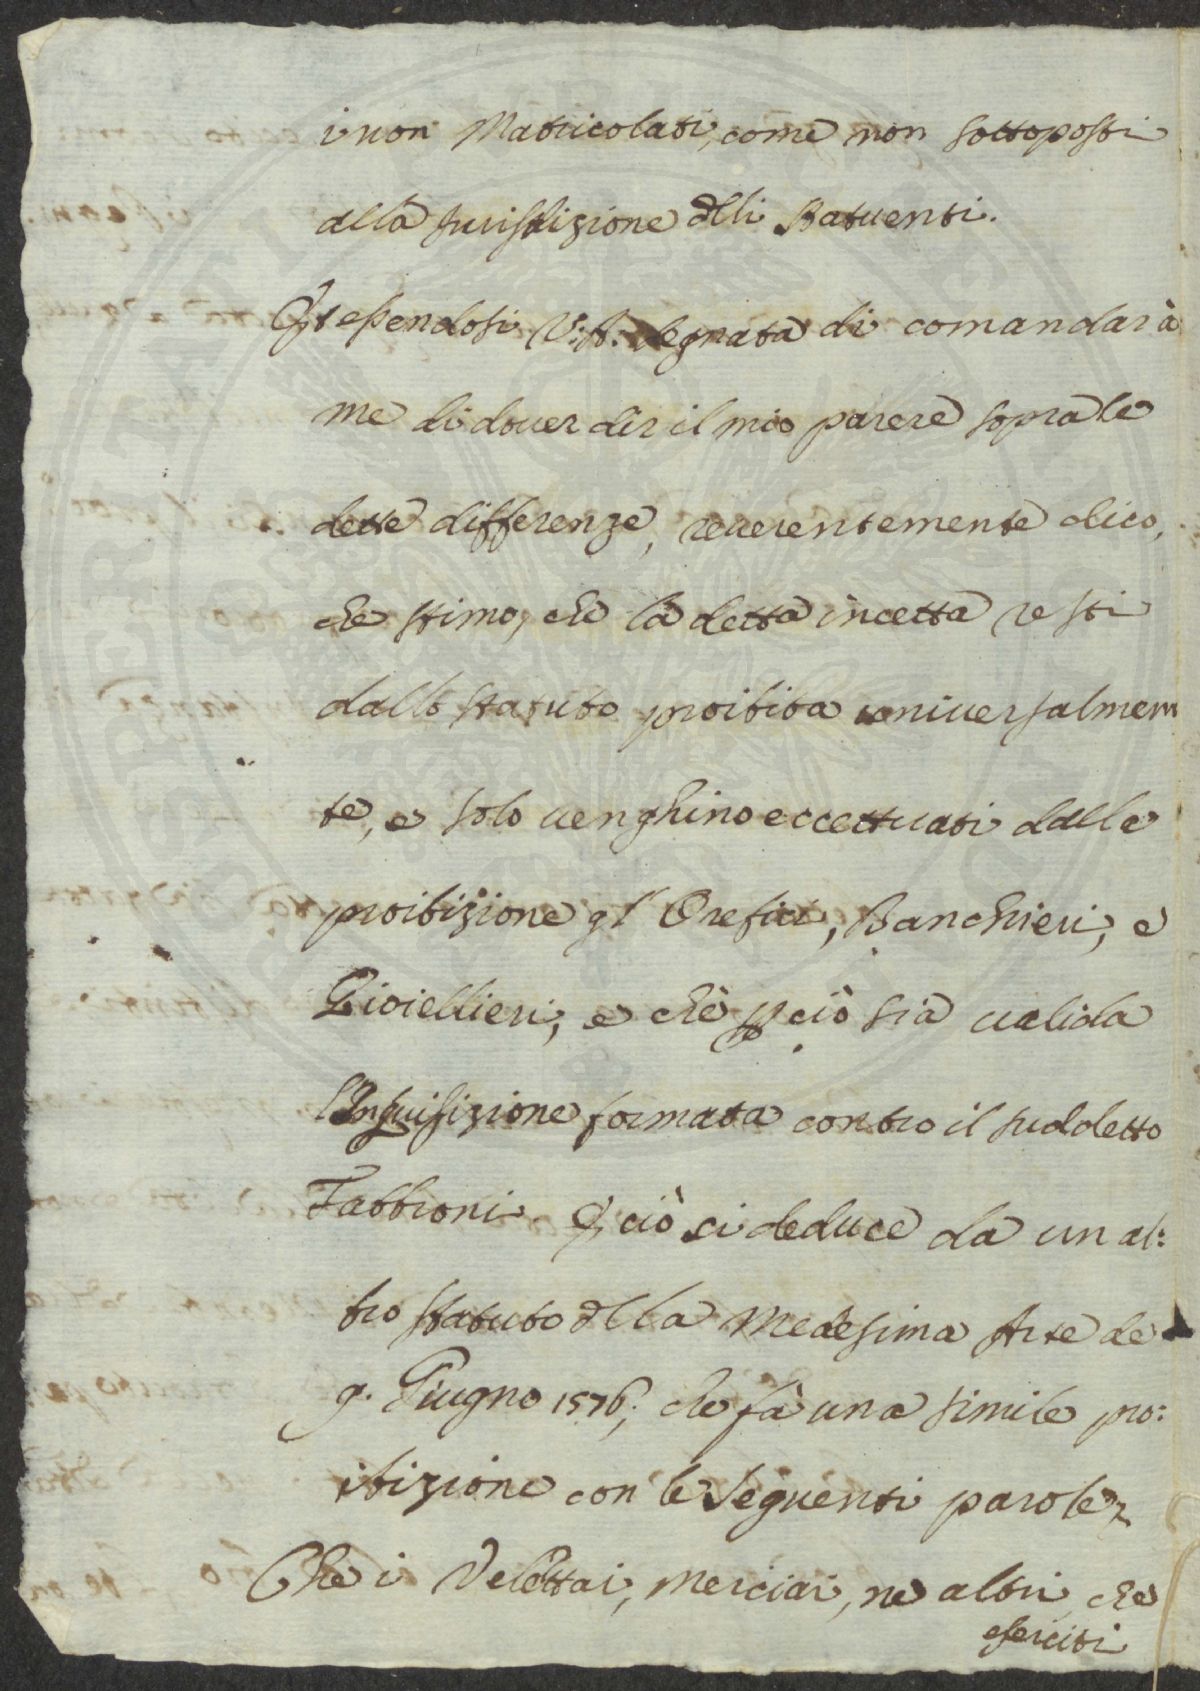 i non Matricolati, come non sottoposti
alla Jurisdizione dlli statuenti.
Et essendosi V: A: degnata di comandar à
me di dover dir il mio parere sopra le
dette differenze, reverentemente dico,
che stimo, che la detta incetta resti
dallo statuto proibita universalmen
te, e solo venghino eccettuati dalla
proibizione gl' Orefici, Banchieri, e
Gioiellieri, e che p ciò sia valida
l'Inquisizione formata contro il suddetto
Fabbroni. E, ciò si deduce da un al:
tro statuto dlla Medesima Arte de
9. Giugno 1576; che fà una simile pro:
ibizione con le seguenti parole
Che i Velettai, Merciai, ne altri, che
eserciti